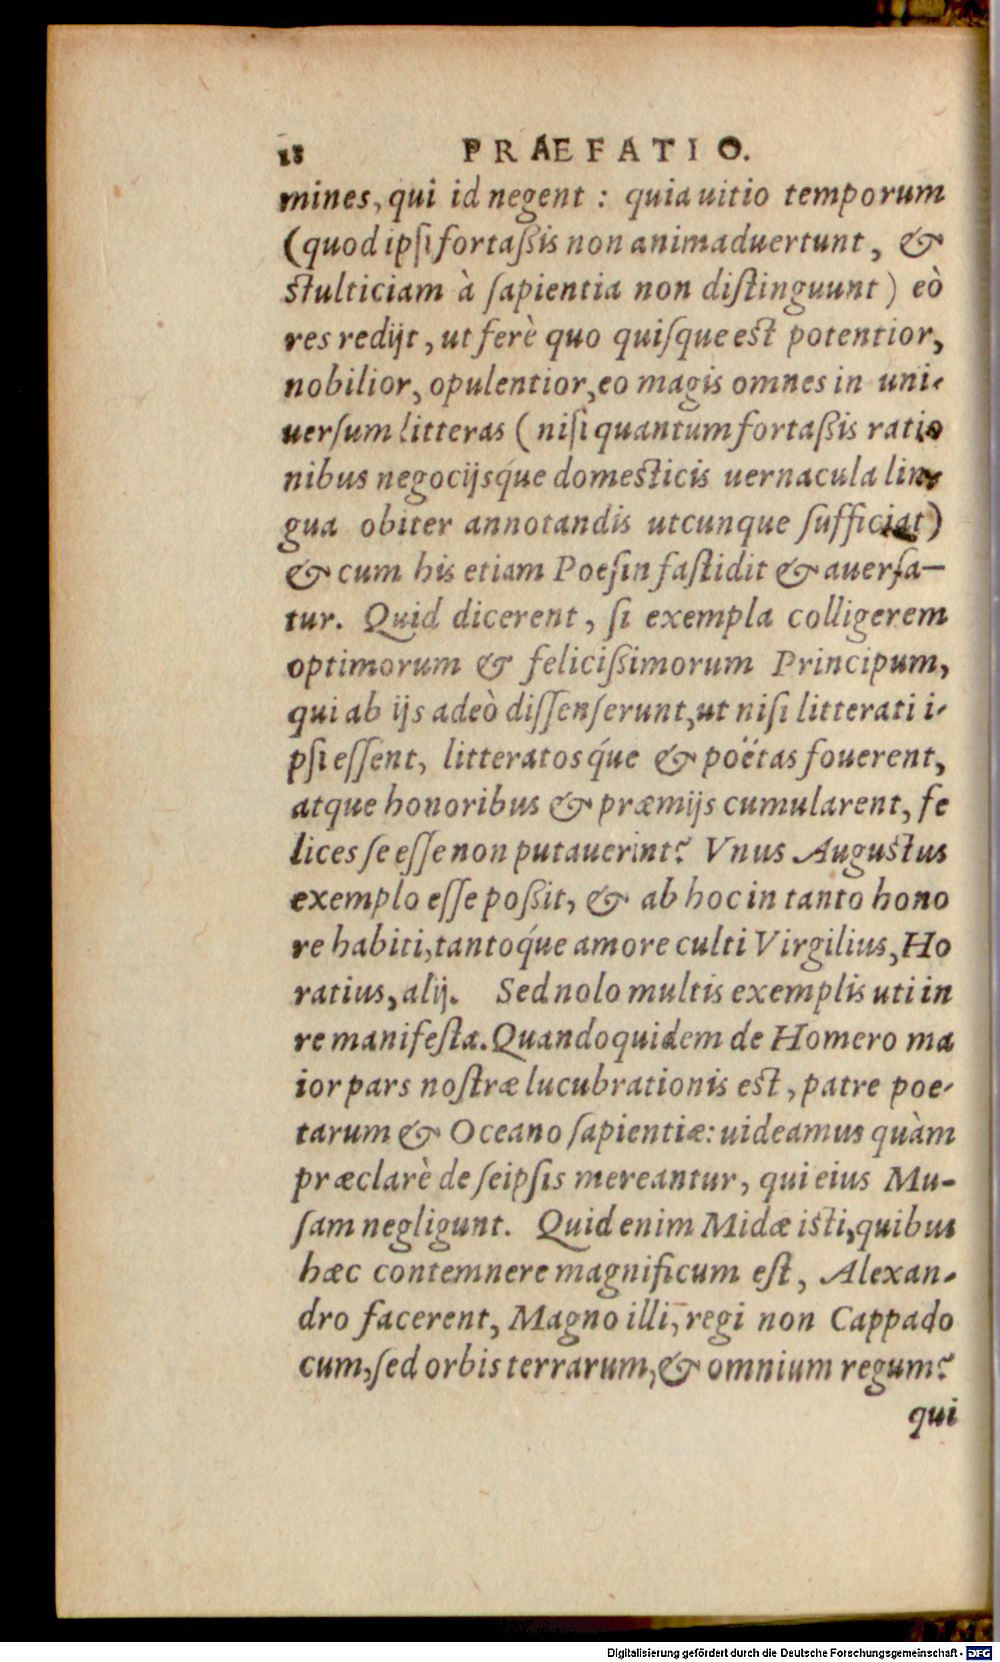 18 PRAEFATIO.
mines, qui id negent : quia uitio temporum
(quod ipſi fortaßis non animaduertunt, &
ſtulticiam à ſapientia non diſtinguunt) eò
res redijt, ut ferè quo quiſque eſt potentior,
nobilior, opulentior, eo magis omnes in uni-
uerſum litteras (niſi quantum fortaßis ratio
nibus negocijsq́ue domeſticis uernacula lin-
gua obiter annotandis utcunque ſufficiat)
& cum his etiam Poeſin faſtidit & auerſa-
tur. Quid dicerent, ſi exempla colligerem
optimorum & felicißimorum Principum,
qui ab ijs adeò diſſenſerunt, ut niſi litterati i-
pſi eſſent, litteratosq́ue & poëtas fouerent,
atque honoribus & præmijs cumularent, fe
lices ſe eſſe non putauerint? Vnus Auguſtus
exemplo eſſe poßit, & ab hoc in tanto hono
re habiti, tantoq́ue amore culti Virgilius, Ho
ratius, alij. Sed nolo multis exemplis uti in
re manifeſta. Quandoquidem de Homero ma
ior pars noſtræ lucubrationis eſt, patre poe-
tarum & Oceano ſapientiæ: uideamus quàm
præclarè de ſeipſis mereantur, qui eius Mu-
ſam negligunt. Quid enim Midæ iſti, quibus
hæc contemnere magnificum eſt, Alexan-
dro facerent, Magno illi, regi non Cappado
cum, ſed orbis terrarum, & omnium regum?
qui
Digitalisierung gefördert durch die Deutsche Forschungsgemeinschaft - DFG